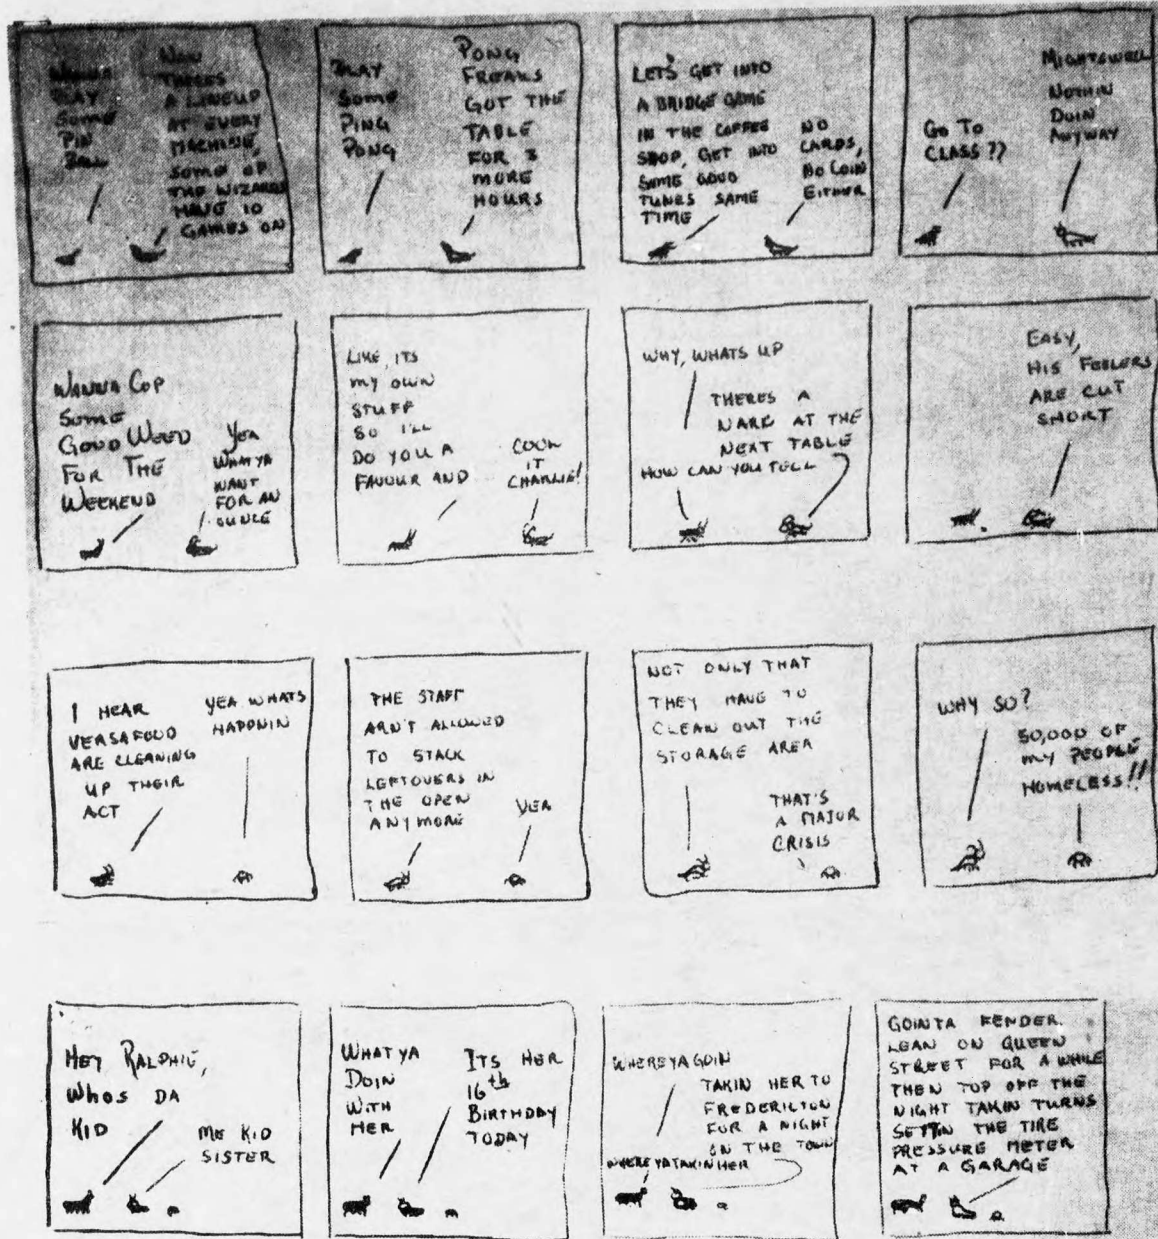 WANNA
PLAY
SOME
PIN
BALL
NAW
THERES
A LINEUP
AT EVERY
MACHINE,
SOME OF
THE WIZARDS
HAVE 10
GAMES ON
PLAY
SOME
PING
PONG
PONG
FREAKS
GOT THE
TABLE
FOR 3
MORE
HOURS
LET'S GET INTO
A BRIDGE GAME
IN THE COFFEE
SHOP, GET INTO
SOME GOOD
TUNES SAME
TIME
NO
CARDS,
NO COIN
EITHER
GO TO
CLASS??
MIGHTSWELL
NOTHIN
DOIN
ANYWAY
WANNA COP
SOME
GOOD WEED
FOR THE
WEEKEND
YEA
WHAT YA
WANT
FOR AN
OUNCE
LIKE, ITS
MY OWN
STUFF
SO I'LL
DO YOU A
FAVOUR AND
COOL
IT
CHARLIE!
WHY, WHATS UP
THERES A
NARK AT THE
NEXT TABLE
HOW CAN YOU TELL
EASY,
HIS FEELERS
ARE CUT
SHORT
I HEAR
VERSAFOOD
ARE CLEANING
UP THEIR
ACT
YEA WHATS
HAPPNIN
THE STAFF
ARN'T ALLOWED
TO STACK
LEFTOVERS IN
THE OPEN
ANYMORE
YEA
NOT ONLY THAT
THEY HAVE TO
CLEAN OUT THE
STORAGE AREA
THAT'S
A MAJOR
CRISIS
WHY SO?
50,000 OF
MY PEOPLE
HOMELESS!!
HEY RALPHIE,
WHOS DA
KID
ME KID
SISTER
WHAT YA
DOIN
WITH
HER
ITS HER
16th
BIRTHDAY
TODAY
WHERE YA GOIN
TAKIN HER TO
FREDERICTON
FOR A NIGHT
ON THE TOWN
WHERE YA TAKIN HER
GOINTA FENDER
LEAN ON QUEEN
STREET FOR A WHILE
THEN TOP OFF THE
NIGHT TAKIN TURNS
SETTN THE TIRE
PRESSURE METER
AT A GARAGE